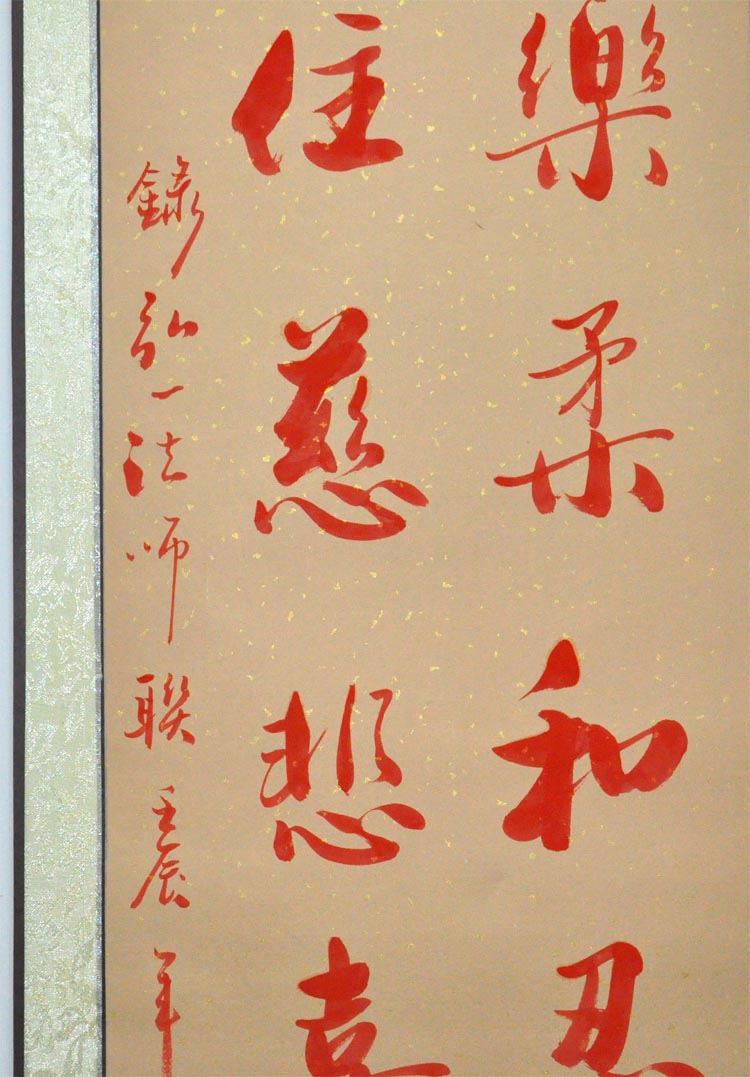 樂柔和忍
住慈悲喜
錄弘一法師聯壬辰年